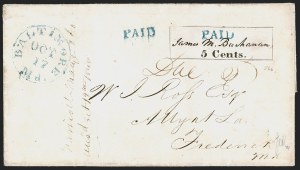 BALTIMORE
OCT
17
Md.
PAID
PAID
James M. Buchanan
5 Cents.
Due
W. J. Ross Esq
Atty at Law
Frederick
Md